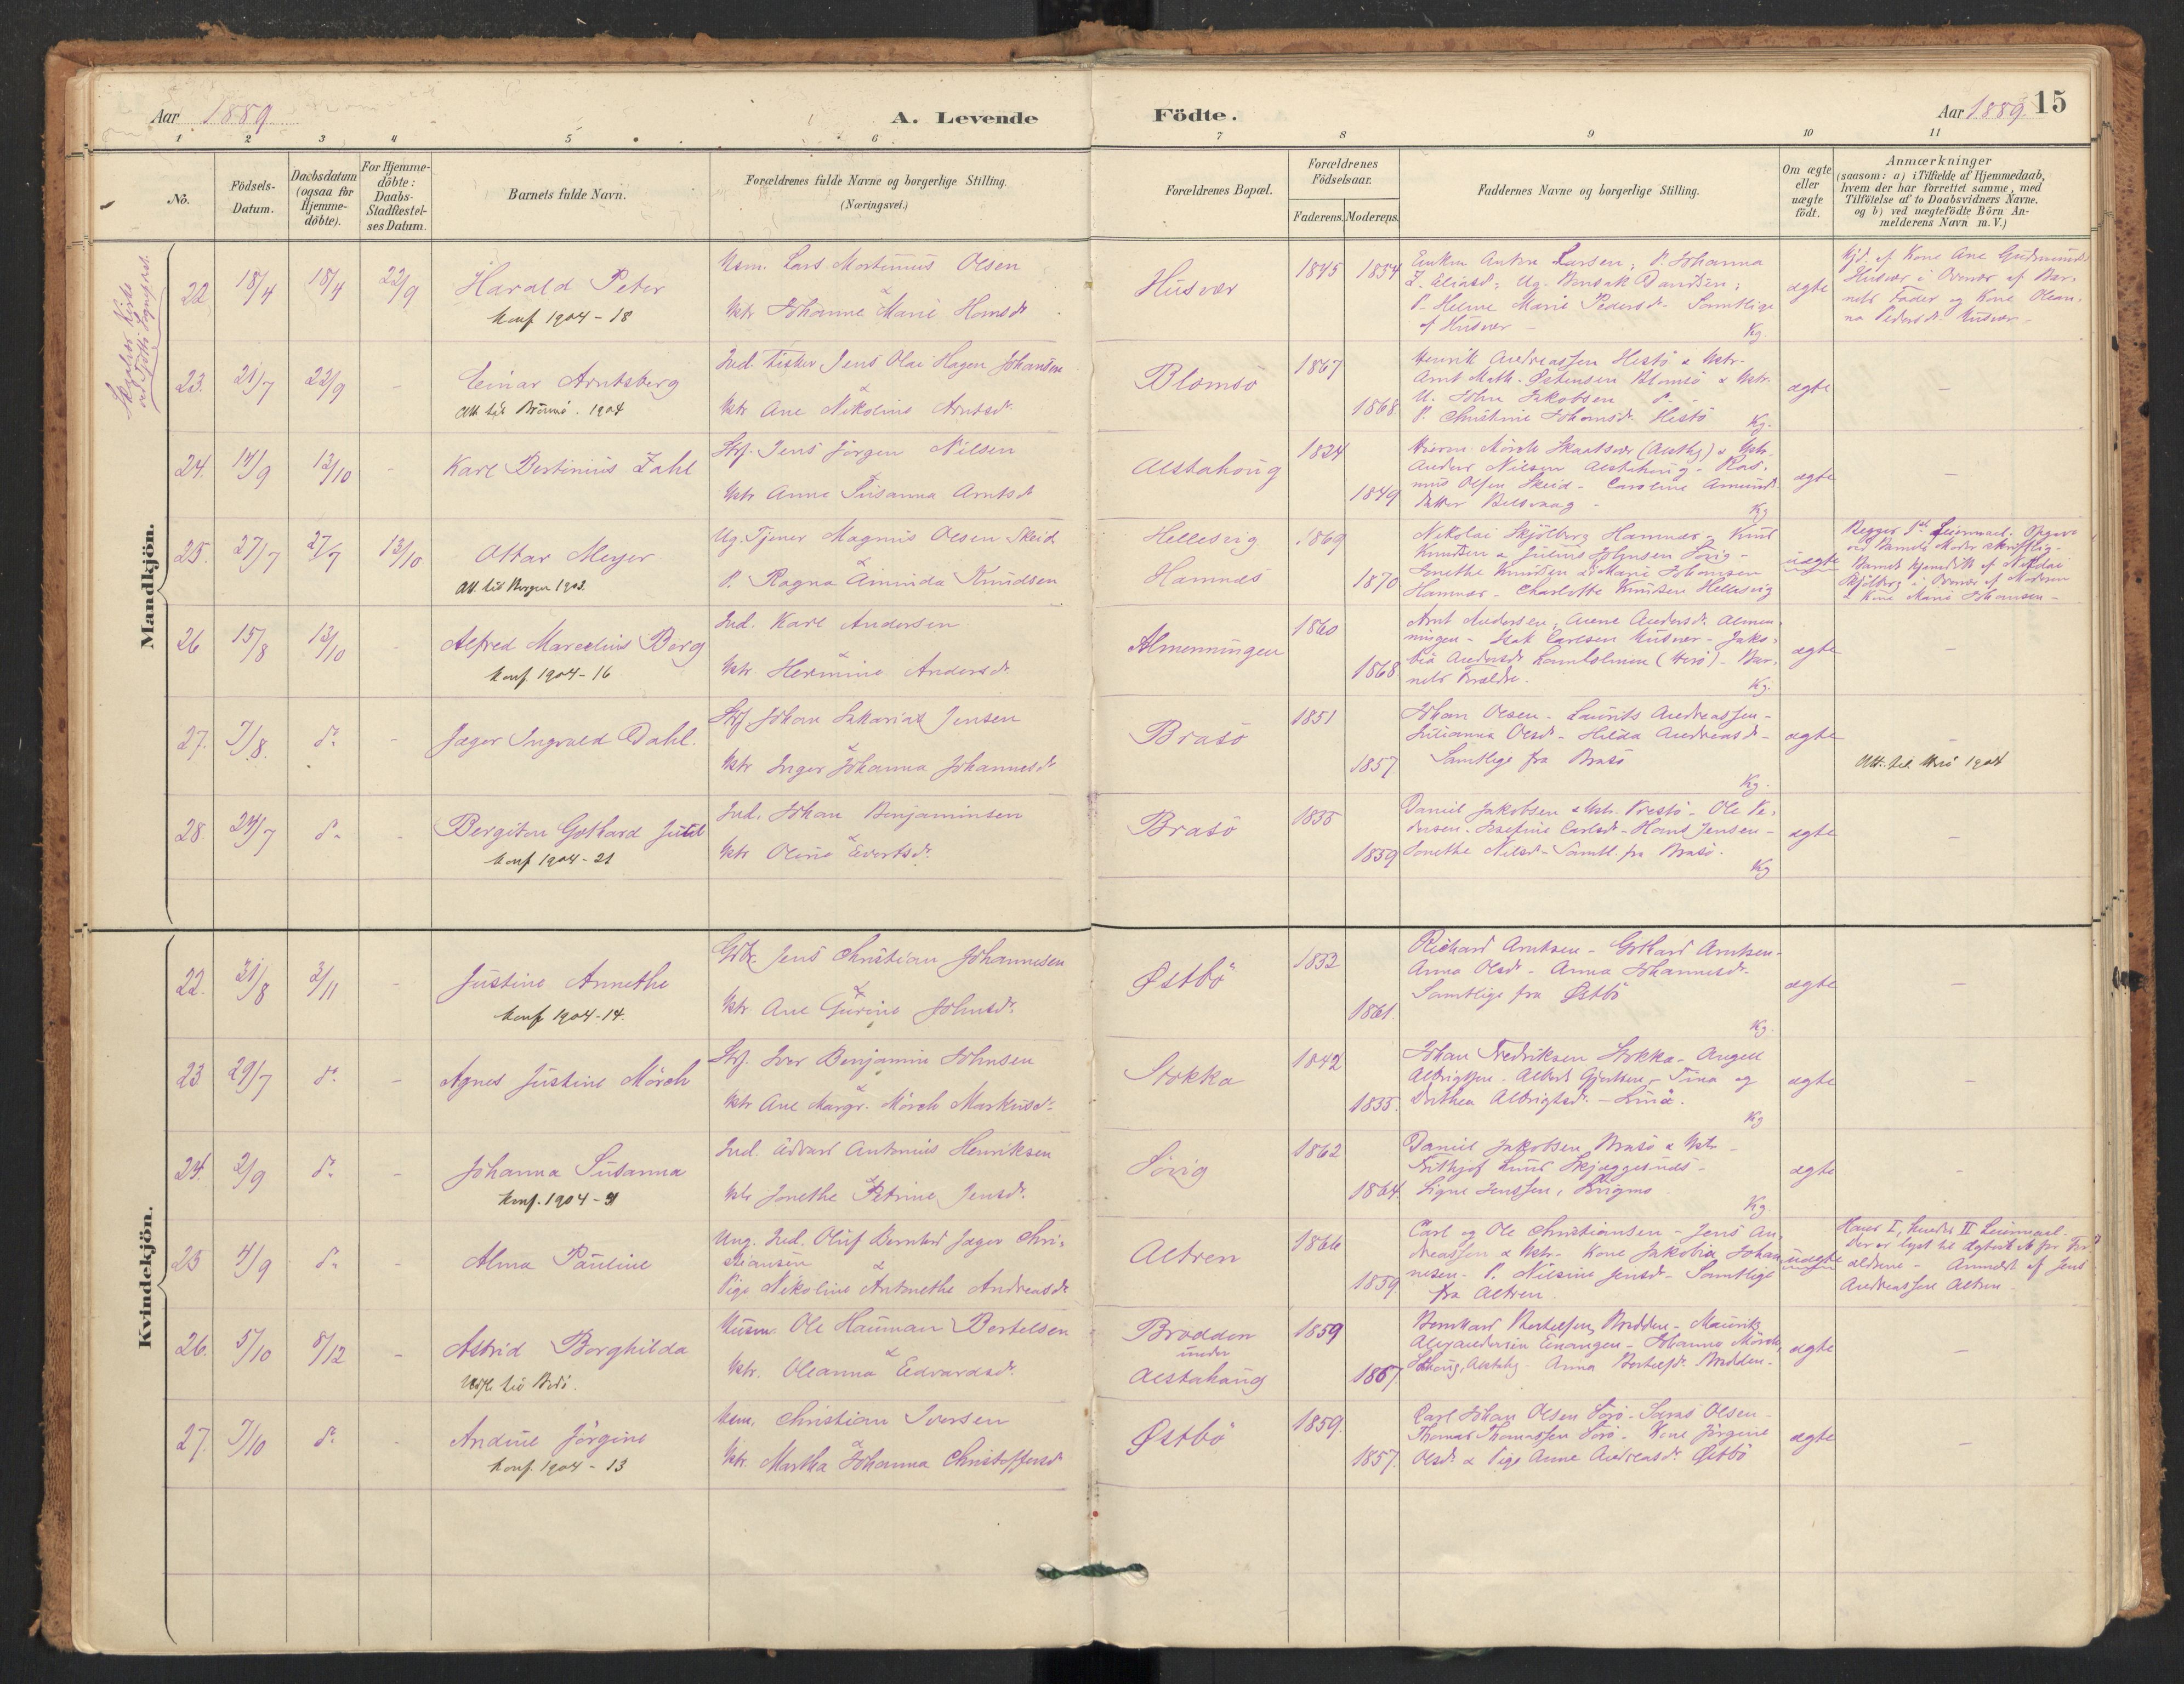 Aar 1889
A. Levende
Födte.
Aar 1889. 15
1 2 3 4 5 6 7 8 9 10 11
No.
Födsels-
Datum.
Daabsdatum
(ogsaa for
Hjemme-
döbte).
For Hjemme-
döbte:
Daabs-
Stadfæstel-
ses Datum.
Barnets fulde Navn.
Forældrenes fulde Navne og borgerlige Stilling.
(Næringsvei.)
Forældrenes Bopæl.
Forældrenes
Födselsaar.
Faderens. Moderens.
Faddernes Navne og borgerlige Stilling.
Om ægte
eller
uægte
födt.
Anmærkninger
(saasom: a) i Tilfælde af Hjemmedaab,
hvem der har forrettet samme, med
Tilföielse af to Daabsvidners Navne.
og b) ved uægtefödte Börn An-
melderens Navn m. V.)
Mandkjön.
22 18/4 18/4 22/9
Harald Peter
Konf 1904 - 18
Lars Mortinius Olsen
&
Johanne Marie Hansdr
Husvær
1845 1854
Anton Larsen, P. Johanna
P. Helene Marie Pedersdr. Samtlige
af Husvær -
Kg.
ægte
Hjd. af Kone Ane
Husvær i Overvær af Bar-
nets Fader og Kone Olean-
na Pedersdr Husvær -
23. 21/7 22/9 -
Einar Arntsberg
Att. til Brönnö. 1904
Ind. Fisker Jens Olai Hagen Johansen
&
Hstr Ane Nikoline Arntsdr.
Blomsö
1867
1868
Henrik Andreassen Hestö & Hstr.
Arnt Math. Østensen Blomsö & Hstr.
U. John Jakobsen
P. Christine Johansdr. Hestö
Kg.
ægte
-
24. 14/9 13/10 -
Karl Bertinius Zahl
Strf. Jens Jörgen Nilsen
Hstr Anne Susanna Arntsdr
Alstahoug
1824
1849
Anders Nilsen Alstahoug - Ras-
mus Olsen Skeid - Caroline Amunds
datter
Kg
ægte
-
25. 27/7 27/7 13/10
Ottar Meyer
Att. til Bergen 1903.
Ug. Tjener Magnus Olsen Skeid
&
P. Ragna Aminda Knudsen
Hellesvig
Hamnæs
1869
1870
Nikolai Skjölberg Hamnæs - Knud
Knudsen & Julius Johnsen
Jenethe Knudsen & Marie Johansen
Hamnæs - Charlotte Knudsen Hellesvig
uægte
Begges 1ste Leiermaal. Opgave
ved Barnets Moder skriftlig -
Barnet hjemdöbt af Nikolai
Skjölberg i Overvær af Moderen
& Kone Marie Johansen -
26 15/8 13/10 -
Alfred Marcelius Borg
Konf. 1904 - 16
Ind. Karl Andersen
&
Hstr Hermine Andersdr.
Almenningen
1860
1868
Arnt Andersen, Anne Andersdr. Almen-
ningen - Isak Carlsen Husvær - Jako-
bia Andersdr. (Herö) - Bar-
nets Forældre.
Kg.
ægte
-
27. 7/8. do -
Jæger Ingvald Dahl.
Strf Johan Sakarias Jensen
&
Hstr Inger Johanna Johannesdr
Brasö
1851
1857
Johan Olsen - Laurits Andreassen -
Julianna Olsdr - Hilda Andreasdr -
Samtlige fra Brasö
Kg.
ægte
-
Att. til Herö 1904
28. 24/7 do -
Bergiton Gothard Juul
Konf 1904 - 21
Ind. Johan Benjaminsen
&
Hstr Oline Evertsdr.
Brasö
1835
1859
Daniel Jakobsen & Hstr. - Ole Pe-
dersen - Josefine Carlsdr - Hans Jensen -
Jonethe Nilsdr - Samtl. fra Brasö.
Kg
ægte
-
Kvindekjön.
22. 31/8 3/11 -
Justine Annethe
Konf 1904 - 14.
Jens Christian Johannesen
&
Hstr Ane Gurine Johnsdr.
Østbö
1833
1861.
Richard Arntsen - Gothard Arntsen -
Anna Olsdr - Anna Johannesdr.
Samtlige fra Østbö
Kg.
ægte
-
23 29/7 do -
Agnes Justine Mörch
Strf. Iver Benjamin Johnsen
&
Hstr Ane Margr. Mörch Markusdr.
Stokka
1842
1835.
Johan Fredriksen Stokka - Angell
Albrigtsen - Albert - Tina og
Dorthea Albrigtsdr. -
Kg
ægte
-
24. 2/9 do -
Johanna Susanna
Konf. 1904 - 31
Ind. Edvard Antonius Henriksen
&
Hstr Jonethe Petrine Jensdr.
Sövig
1862
1864.
Daniel Jakobsen Brasö & Hstr -
Frithjof Lund Skjeggesnæs -
Signe Jenssen,
Kg
ægte
-
25 4/9 do -
Alma Pauline
Ung. Ind. Oluf Bernhard Jæger Chri-
stiansen
&
Pige Nikoline Antonethe Andreasdr
Altren
1866
1859.
Carl og Ole Christiansen - Jens An-
dreassen & Hstr - Kone Jakobia Johan-
nesen - P. Nilsine Jensdr - Samtlige
fra Altren.
uægte
Hans I, hendes II Leiermaal.
Der er lyst til Ægteskab for For-
ældrene - Anmeldt af Jens
Andreassen Altren.
26. 5/10 8/12 -
Astrid Borghilda
til Bodö.
Husm. Ole Hauman Bertelsen
&
Hstr. Oleanna Edvardsdr.
Brodden
under
Alstahaug
1859
1867.
Bernhard Bertelsen, Brodden - Maurits
Alexandersen - Johanna Mörch,
Anna Bertelsdr. Brodden.
ægte
-
27. 7/10 do -
Andine Jörgine
Konf. 1904 - 13
Christian Iversen
&
Hstr Martha Johanna Christoffersdr
Østbö
1859.
1857.
Carl Johan Olsen - Olsen -
Thomas Thomassen - Kone Jörgine
Olsdr & Pige Anne Andreasdr. Østbö
ægte
-